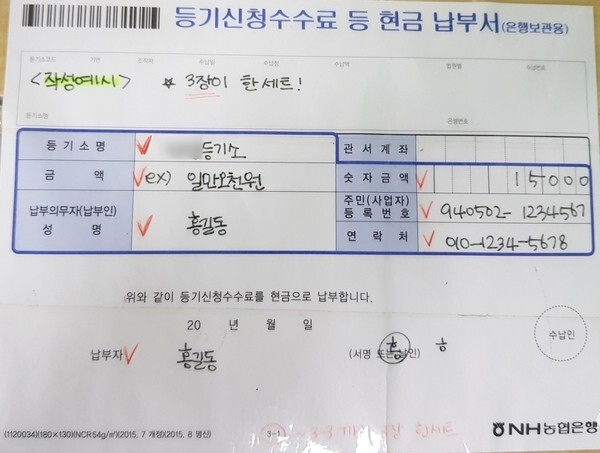 등기신청수수료 등 현금 납부서(은행보관용)
등기소코드 기번 조작자 수납일 수납번 수납액 법원별 수납번호
<작성예시> ☆ 3장이 한세트!
등기소명 은행번호:
등기소명 등기소 관서계좌
금액 ex) 일만오천원 숫자금액 15000
납부의무자(납부인) 성명 홍길동 주민(사업자) 등록번호 940502-1234567
연락처 010-1234-5678
위와 같이 등기신청수수료를 현금으로 납부합니다.
20 년 월 일
수납인
납부자 홍길동 (서명 또는 날인) 홍
(1120034)(180×130)(NCR54g/㎡)(2015, 7 개정)(2015, 8 갱신) 3-1 한세트
NH농협은행